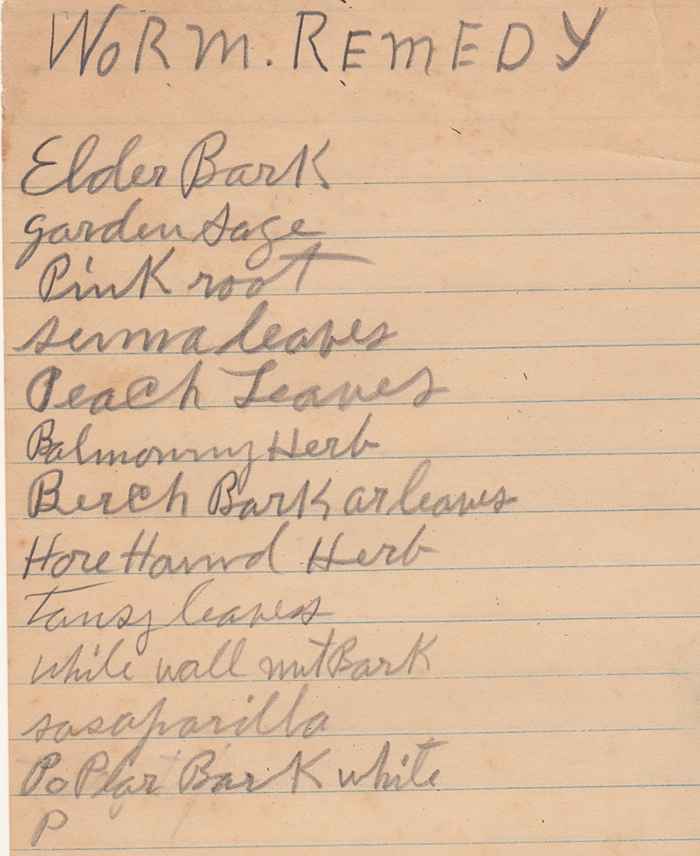 WORM. REMEDY
Elder Bark
garden sage
Pink root
senna leaves
Peach Leaves
Balmonny Herb
Berch Bark ar leaves
Hore Hound Herb
Tansy leaves
while wall nut Bark
sasaparilla
PoPlar Bark white
P